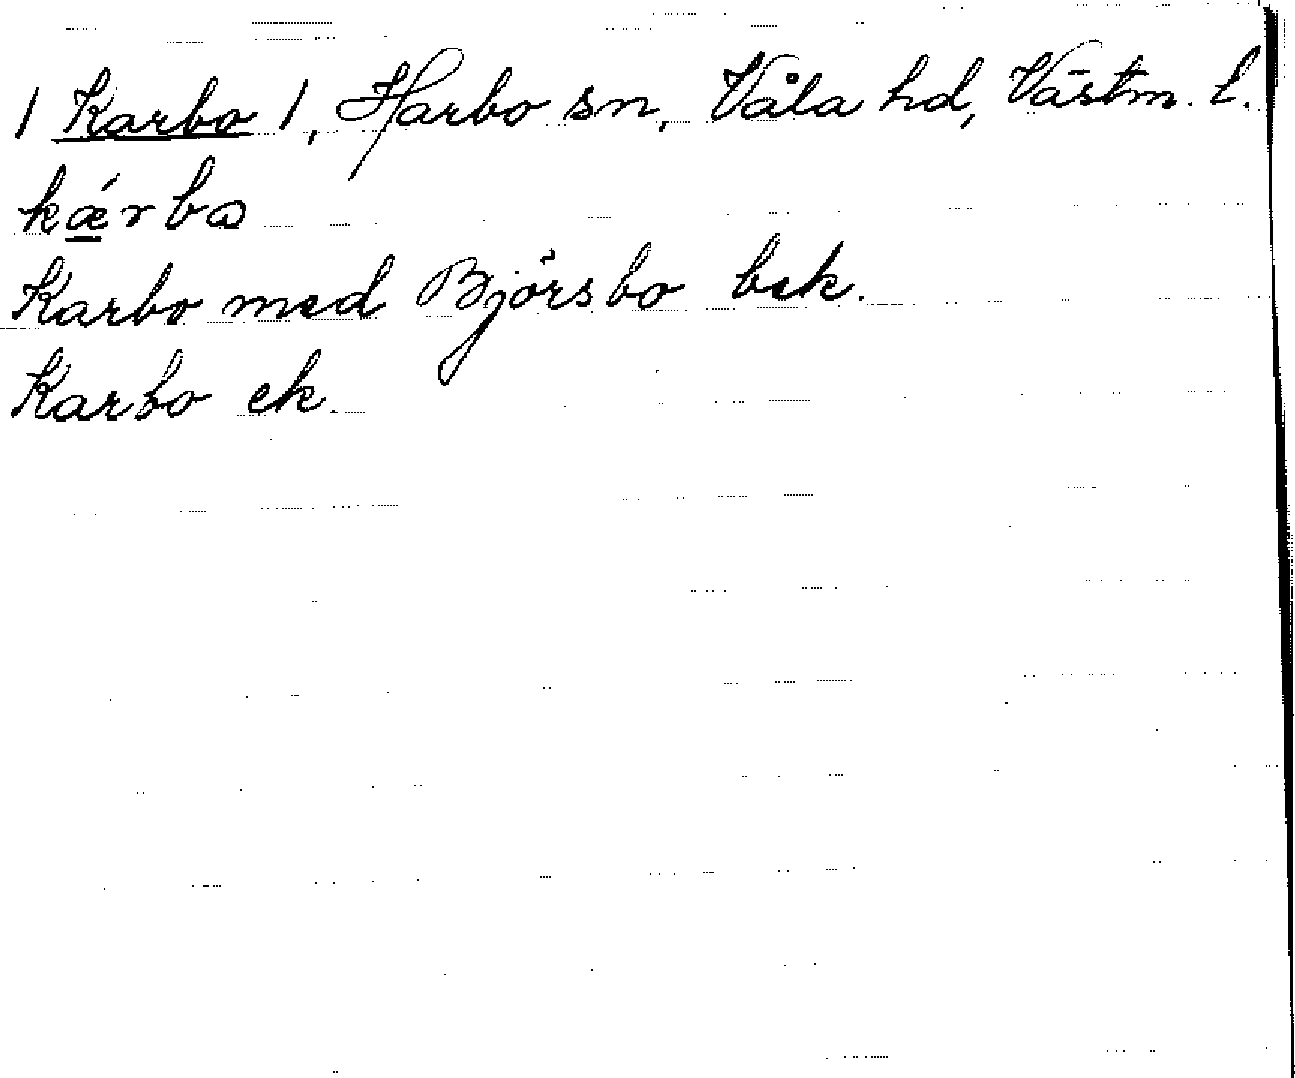 / Karbo /, Harbo sn, Våla hd, Västm. l.
kǽrbɷ
Karbo med Björsbo bek.
Karbo ek.